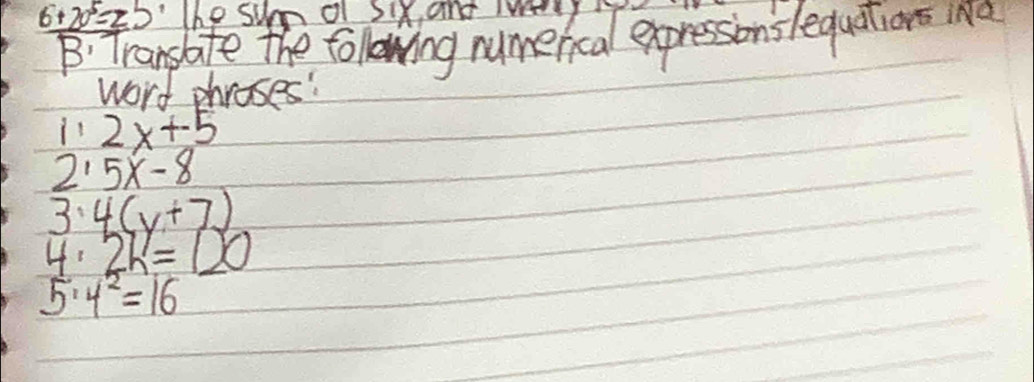 6+20⁵=25' The sum of six, and
B. Translate the following numerical expressions/equations into
word phrases:
1. 2x+5
2. 5x-8
3. 4(y+7)
4. 2h=120
5. 4²=16